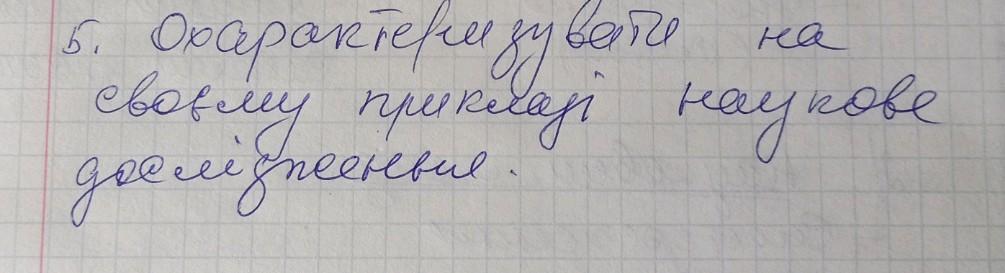 5. Охарактеризувати на
своєму прикладі наукове
дослідження.